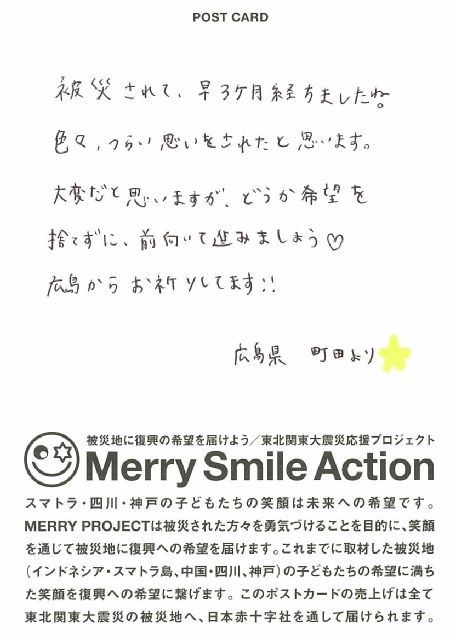 POST CARD
被災されて、早3ケ月経ちましたね。
色々、つらい思いをされたと思います。
大変だと思いますが、どうか希望を
捨てずに、前向いて進みましょう♡
広島からお祈りしてます!!
広島県 町田より
被災地に復興の希望を届けよう／東北関東大震災応援プロジェクト
Merry Smile Action
スマトラ・四川・神戸の子どもたちの笑顔は未来への希望です。
MERRY PROJECTは被災された方々を勇気づけることを目的に、笑顔
を通じて被災地に復興への希望を届けます。これまでに取材した被災地
（インドネシア・スマトラ島、中国・四川、神戸）の子どもたちの希望に満ち
た笑顔を復興への希望に繋げます。このポストカードの売上げは全て
東北関東大震災の被災地へ、日本赤十字社を通して届けられます。